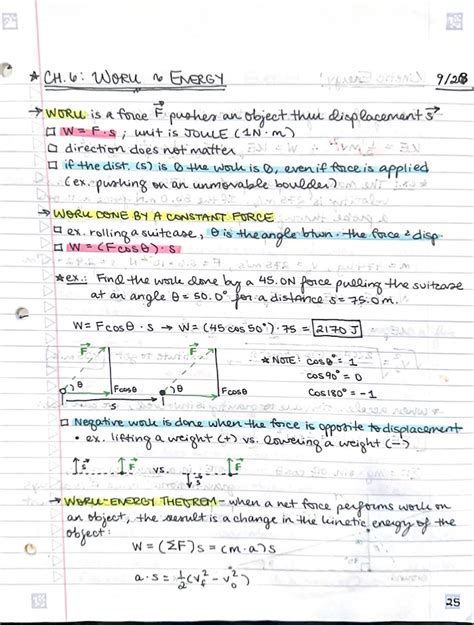 ★ CH. 6: WORK & ENERGY 9/28
→ WORK is a force F⃗ pushes an object thru displacement s⃗
□ W = F·s ; unit is JOULE (1N·m)
□ direction does not matter
□ if the dist. (s) is 0 the work is 0, even if force is applied
(ex. pushing on an unmovable boulder)
→ WORK DONE BY A CONSTANT FORCE
□ ex. rolling a suitcase, θ is the angle btwn. the force & disp.
□ W = (Fcosθ)·s
★ ex.: Find the work done by a 45.0N force pulling the suitcase
at an angle θ = 50.0° for a distance s = 75.0m.
W = Fcosθ·s → W = (45cos50°)·75 = 2170 J
F⃗ F⃗ ★ NOTE: cos0° = 1
cos90° = 0
θ Fcosθ θ Fcosθ cos180° = -1
s
□ Negative work is done when the force is opposite to displacement
• ex. lifting a weight (+) vs. lowering a weight (-)
s⃗ F⃗ vs. s⃗ F⃗
→ WORK-ENERGY THEOREM - when a net force performs work on
an object, the result is a change in the kinetic energy of the
object:
W = (ΣF)s = (m·a)s
a·s = ½(v_f² - v_0²)
25